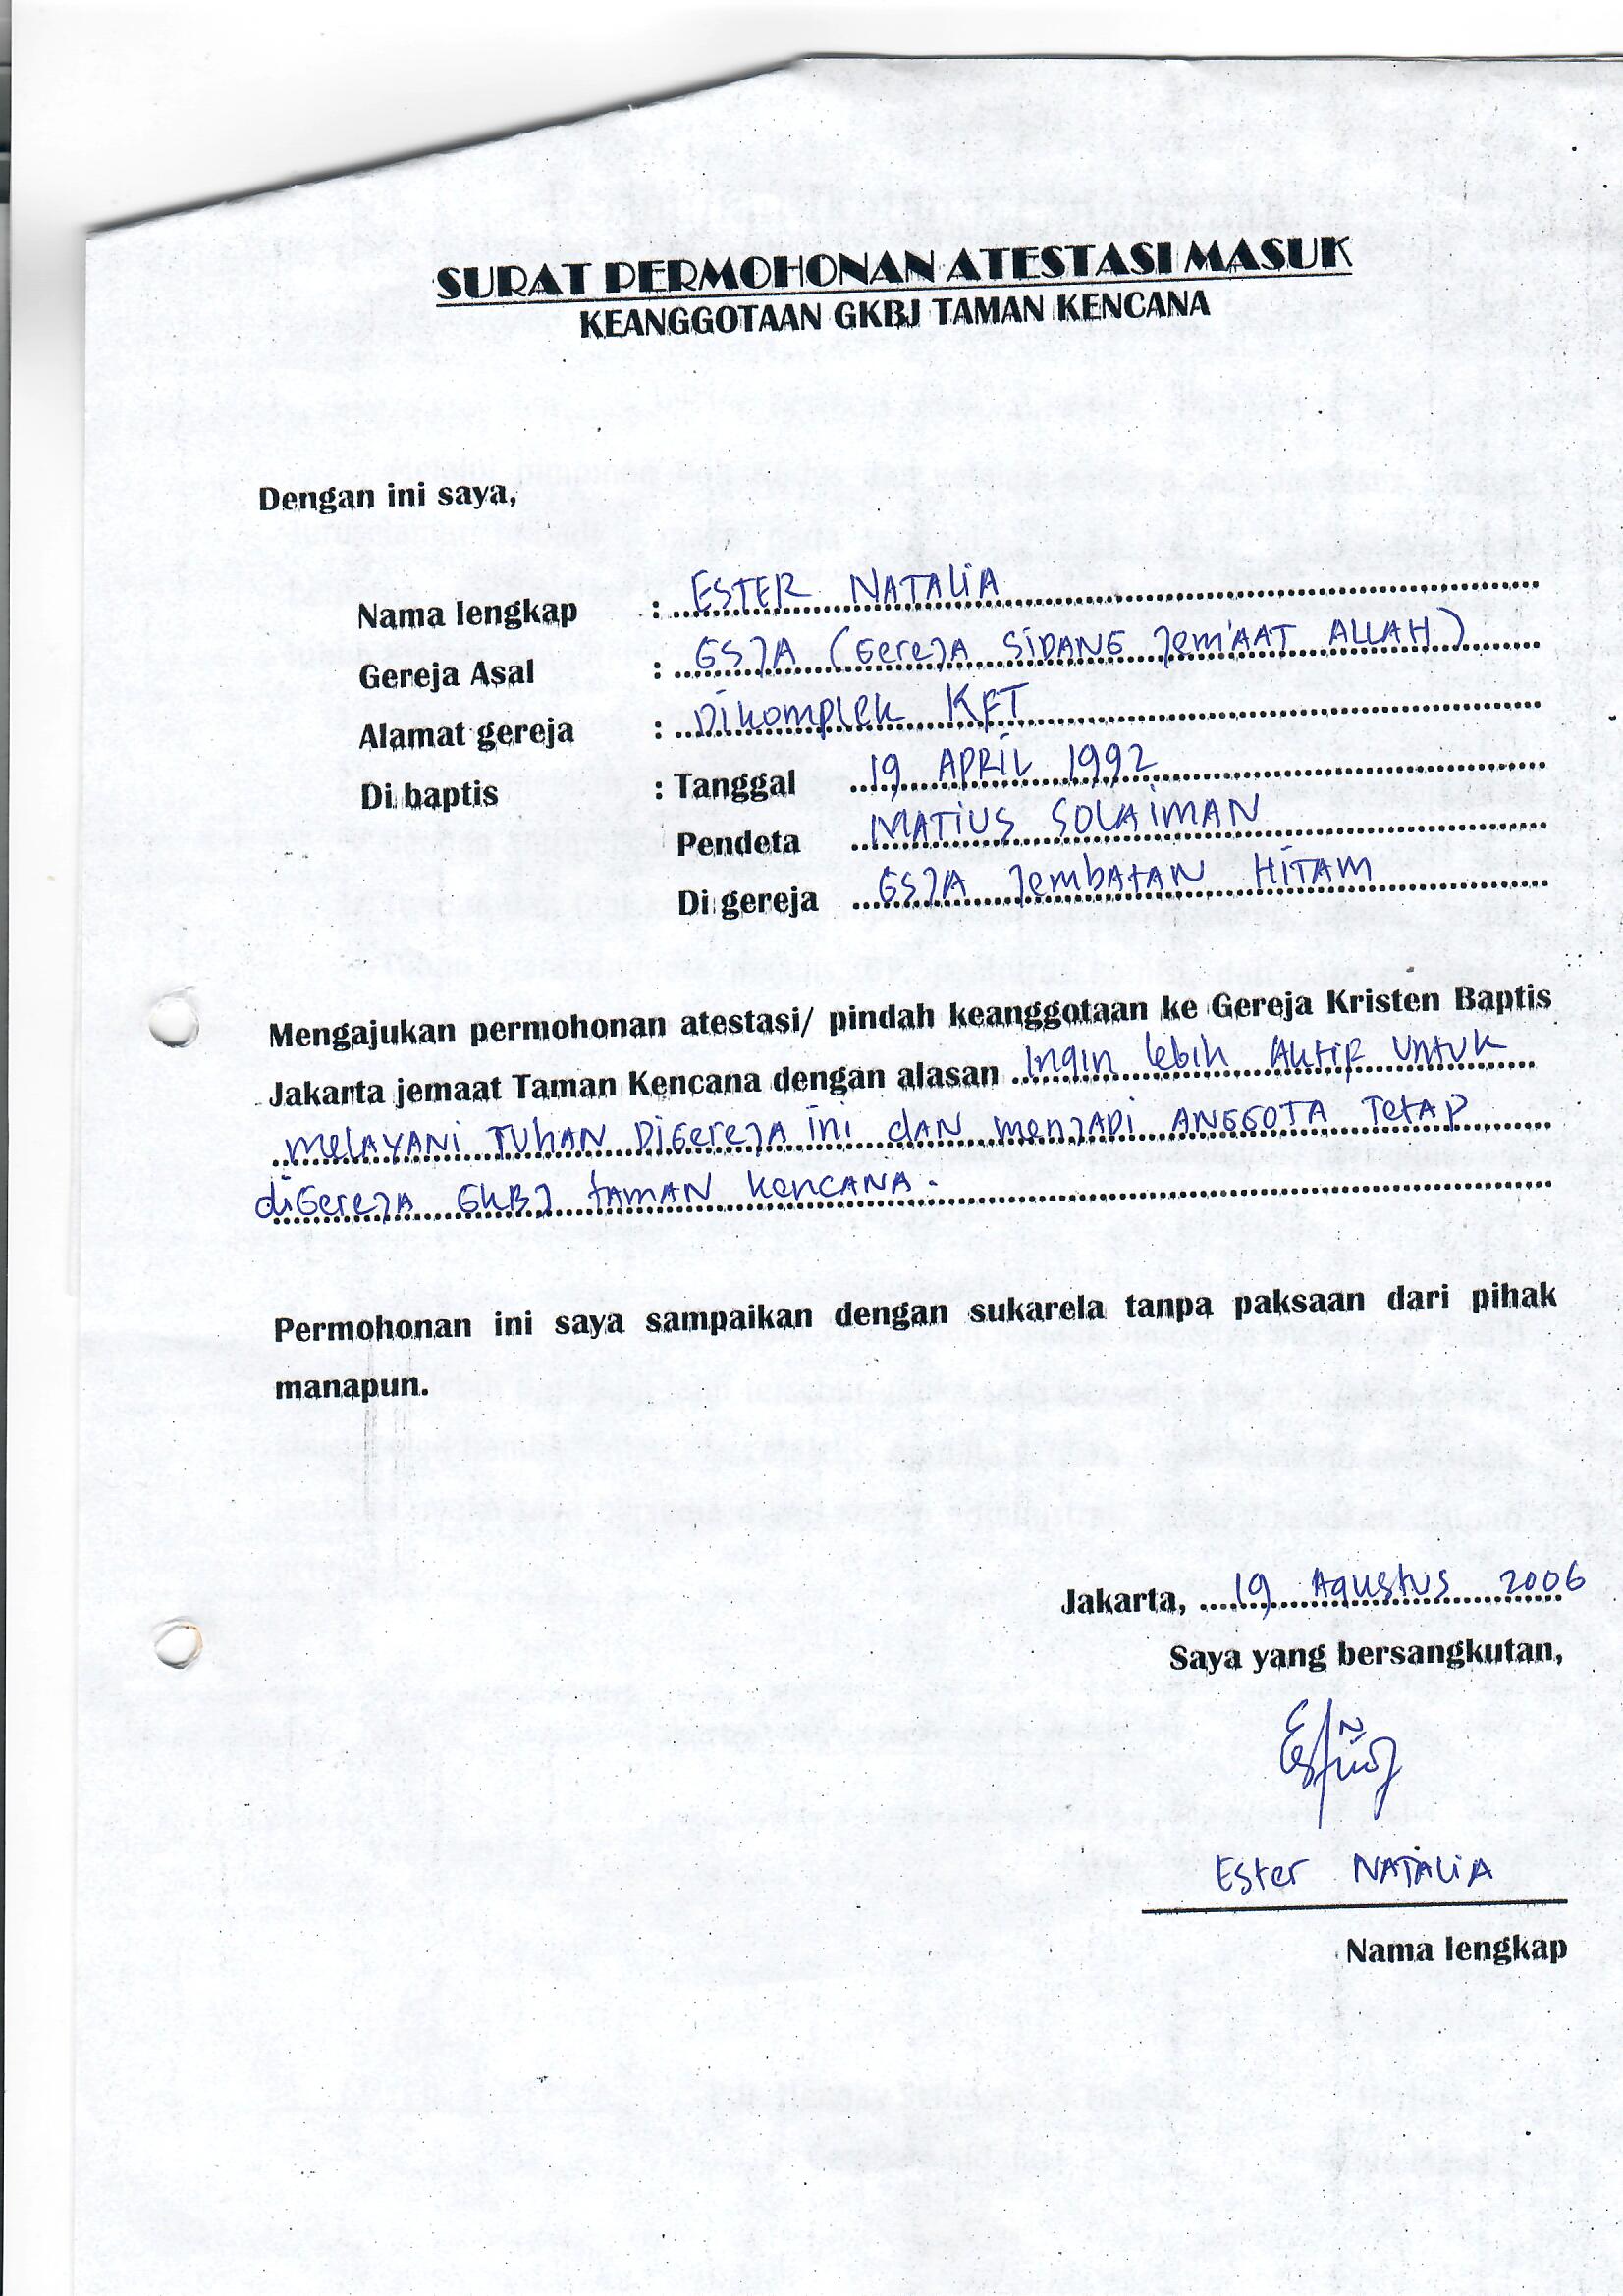 SURAT PERMOHONAN ATESTASI MASUK
KEANGGOTAAN GKBJ TAMAN KENCANA
Dengan ini saya,
Nama lengkap : ESTER NATALIA
Gereja Asal : GSJA (Gereja SIDANG Jem'AAT ALLAH)
Alamat gereja : Dikomplek KFT
Di baptis : Tanggal 19 APRIL 1992
Pendeta MATIUS SOLAIMAN
Di gereja GSJA JembATAN HITAM
Mengajukan permohonan atestasi/ pindah keanggotaan ke Gereja Kristen Baptis
Jakarta jemaat Taman Kencana dengan alasan Ingin lebih Aktif untuk
melAYANI TUHAN DiGereJA ini dAN menJADI ANGGOTA TetAP
diGereJA GKBJ tAMAN KenCANA.
Permohonan ini saya sampaikan dengan sukarela tanpa paksaan dari pihak
manapun.
Jakarta, 19 Agustus 2006
Saya yang bersangkutan,
Ester NATALIA
Nama lengkap